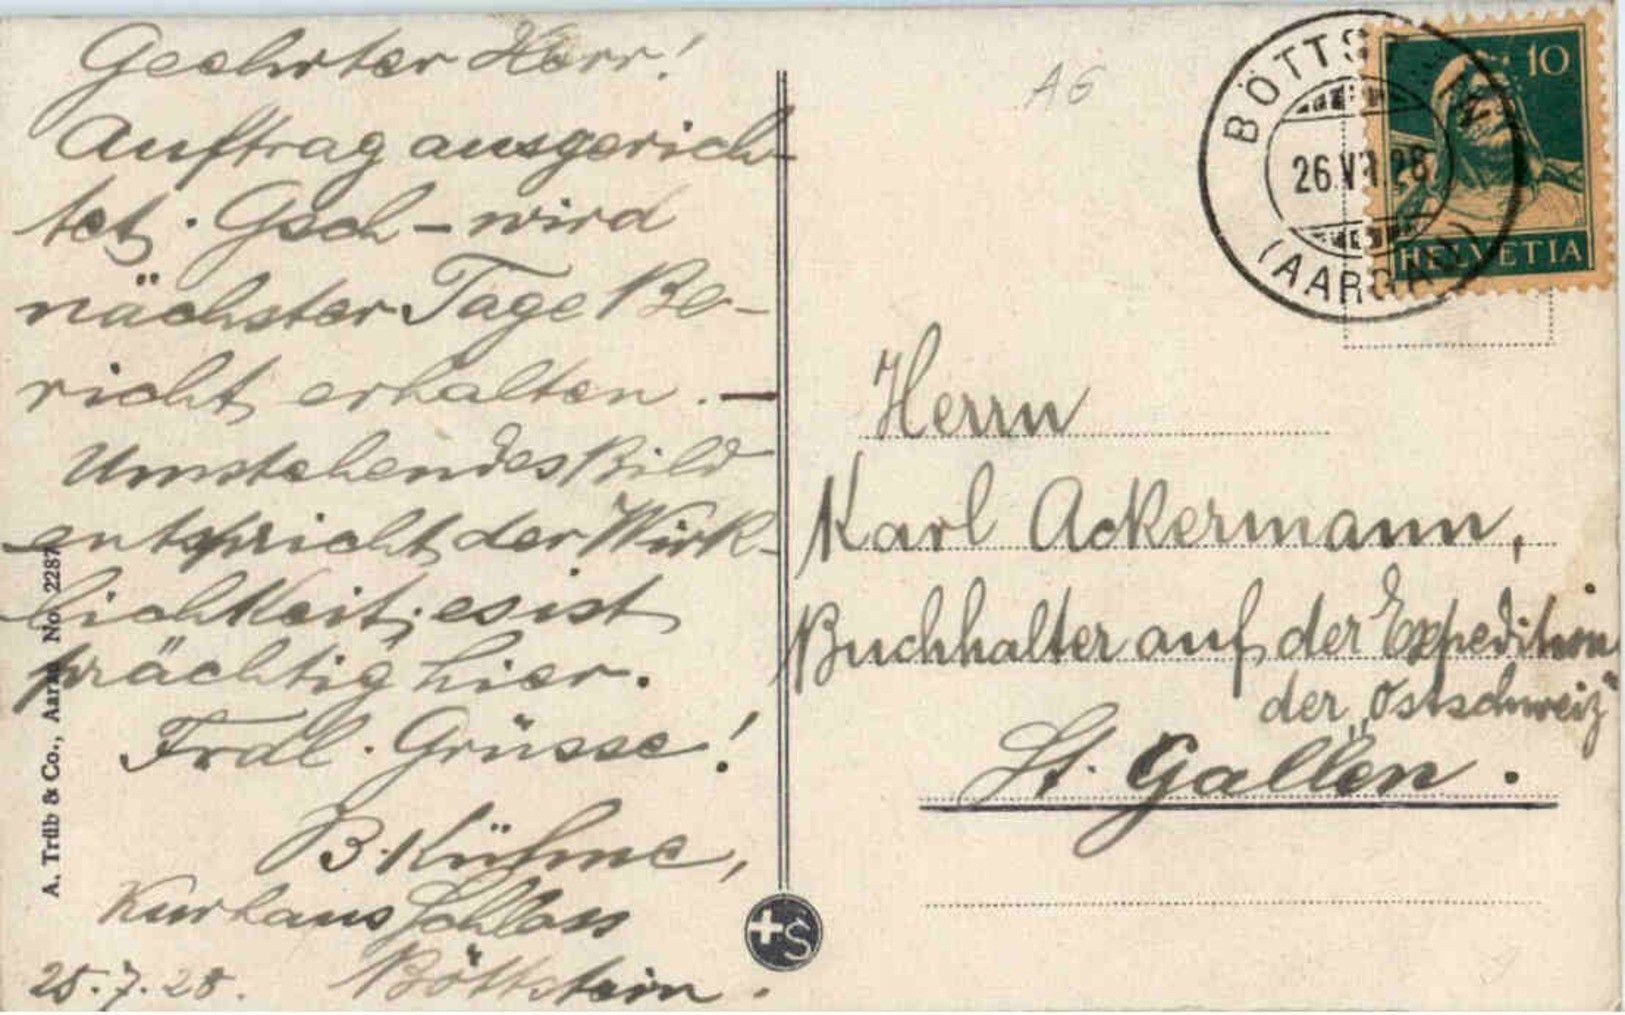 Geehrter Herr!
Auftrag ausgerich-
tet. Gsch- wird
nächster Tage Be-
richt erhalten. —
Umstehendes Bild
entspricht der Wirk-
lichkeit; es ist
prächtig hier.
Frdl. Grüsse!
B. Kühne,
Kurhaus Schloss
Böttstein.
25.7.28.
A. Trüb & Co., Aarau No. 2287
+S
A6
BÖTTSTEIN
26.VII.28
(AARGAU)
10
HELVETIA
Herrn
Karl Ackermann,
Buchhalter auf der Expedition
der „Ostschweiz"
St. Gallen.